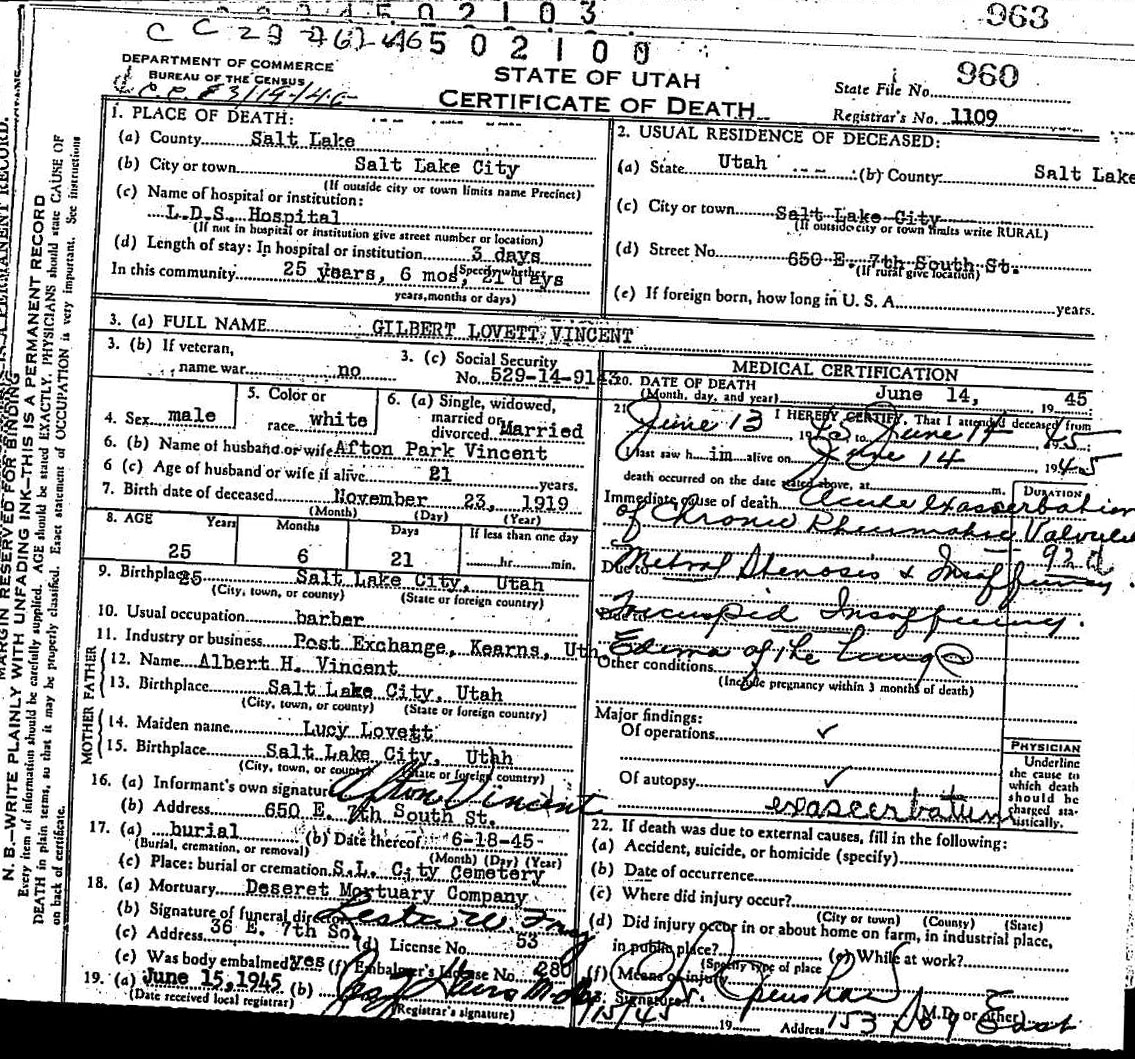 963
5 0 2 1 0 0
960
DEPARTMENT OF COMMERCE
BUREAU OF THE CENSUS
STATE OF UTAH
CERTIFICATE OF DEATH
State File No.
Registrar's No. 1109
1. PLACE OF DEATH:
(a) County Salt Lake
(b) City or town Salt Lake City
(If outside city or town limits name Precinct)
(c) Name of hospital or institution:
L.D.S. Hospital
(If not in hospital or institution give street number or location)
(d) Length of stay: In hospital or institution 3 days
(Specify whether
In this community 25 years, 6 mos, 21 days
years, months or days)
2. USUAL RESIDENCE OF DECEASED:
(a) State Utah (b) County Salt Lake
(c) City or town Salt Lake City
(If outside city or town limits write RURAL)
(d) Street No. 650 E. 7th South St.
(If rural give location)
(e) If foreign born, how long in U. S. A. years.
3. (a) FULL NAME GILBERT LOVETT VINCENT
3. (b) If veteran,
name war no
3. (c) Social Security
No. 529-14-9143
4. Sex male
5. Color or
race white
6. (a) Single, widowed,
married or
divorced Married
6. (b) Name of husband or wife Afton Park Vincent
6 (c) Age of husband or wife if alive 21 years.
7. Birth date of deceased November 23, 1919
(Month) (Day) (Year)
8. AGE Years Months Days If less than one day
25 6 21 hr. min.
9. Birthplace 25 Salt Lake City, Utah
(City, town, or county) (State or foreign country)
10. Usual occupation barber
11. Industry or business Post Exchange, Kearns, Uth
FATHER
12. Name Albert H. Vincent
13. Birthplace Salt Lake City, Utah
(City, town, or county) (State or foreign country)
MOTHER
14. Maiden name Lucy Lovett
15. Birthplace Salt Lake City, Utah
(City, town, or county) (State or foreign country)
16. (a) Informant's own signature Afton Vincent
(b) Address 650 E. 7th South St.
17. (a) burial (b) Date thereof 6-18-45
(Burial, cremation, or removal) (Month) (Day) (Year)
(c) Place: burial or cremation S.L. City Cemetery
18. (a) Mortuary Deseret Mortuary Company
(b) Signature of funeral director
(c) Address 36 E. 7th So. (d) License No. 53
(e) Was body embalmed? yes (f) Embalmer's License No. 280
19. (a) June 15, 1945 (b)
(Date received local registrar) (Registrar's signature)
MEDICAL CERTIFICATION
20. DATE OF DEATH
(Month, day, and year) June 14, 19 45
21. I HEREBY CERTIFY, That I attended deceased from
June 13 1945 to June 14 1945
I last saw h im alive on June 14 1945
death occurred on the date stated above, at m.
DURATION
Immediate cause of death Acute exascerbation
of Chronic Rheumatic Valvular
92
Due to Mitral Stenosis & Insufficiency
Due to Tricuspid Insufficiency.
Edema of the Lungs
Other conditions
(Include pregnancy within 3 months of death)
Major findings:
Of operations ✓
Of autopsy ✓
exascerbation
PHYSICIAN
Underline
the cause to
which death
should be
charged sta-
tistically.
22. If death was due to external causes, fill in the following:
(a) Accident, suicide, or homicide (specify)
(b) Date of occurrence
(c) Where did injury occur?
(City or town) (County) (State)
(d) Did injury occur in or about home on farm, in industrial place,
in public place?
(Specify type of place
(e) While at work?
(f) Means of injury
23. Signature (M.D. or other)
/15/45 19 Address 153 East
N. B.—WRITE PLAINLY WITH UNFADING INK—THIS IS A PERMANENT RECORD
MARGIN RESERVED FOR BINDING
Every item of information should be carefully supplied. AGE should be stated EXACTLY. PHYSICIANS should state CAUSE OF
DEATH in plain terms, so that it may be properly classified. Exact statement of OCCUPATION is very important. See instructions
on back of certificate.